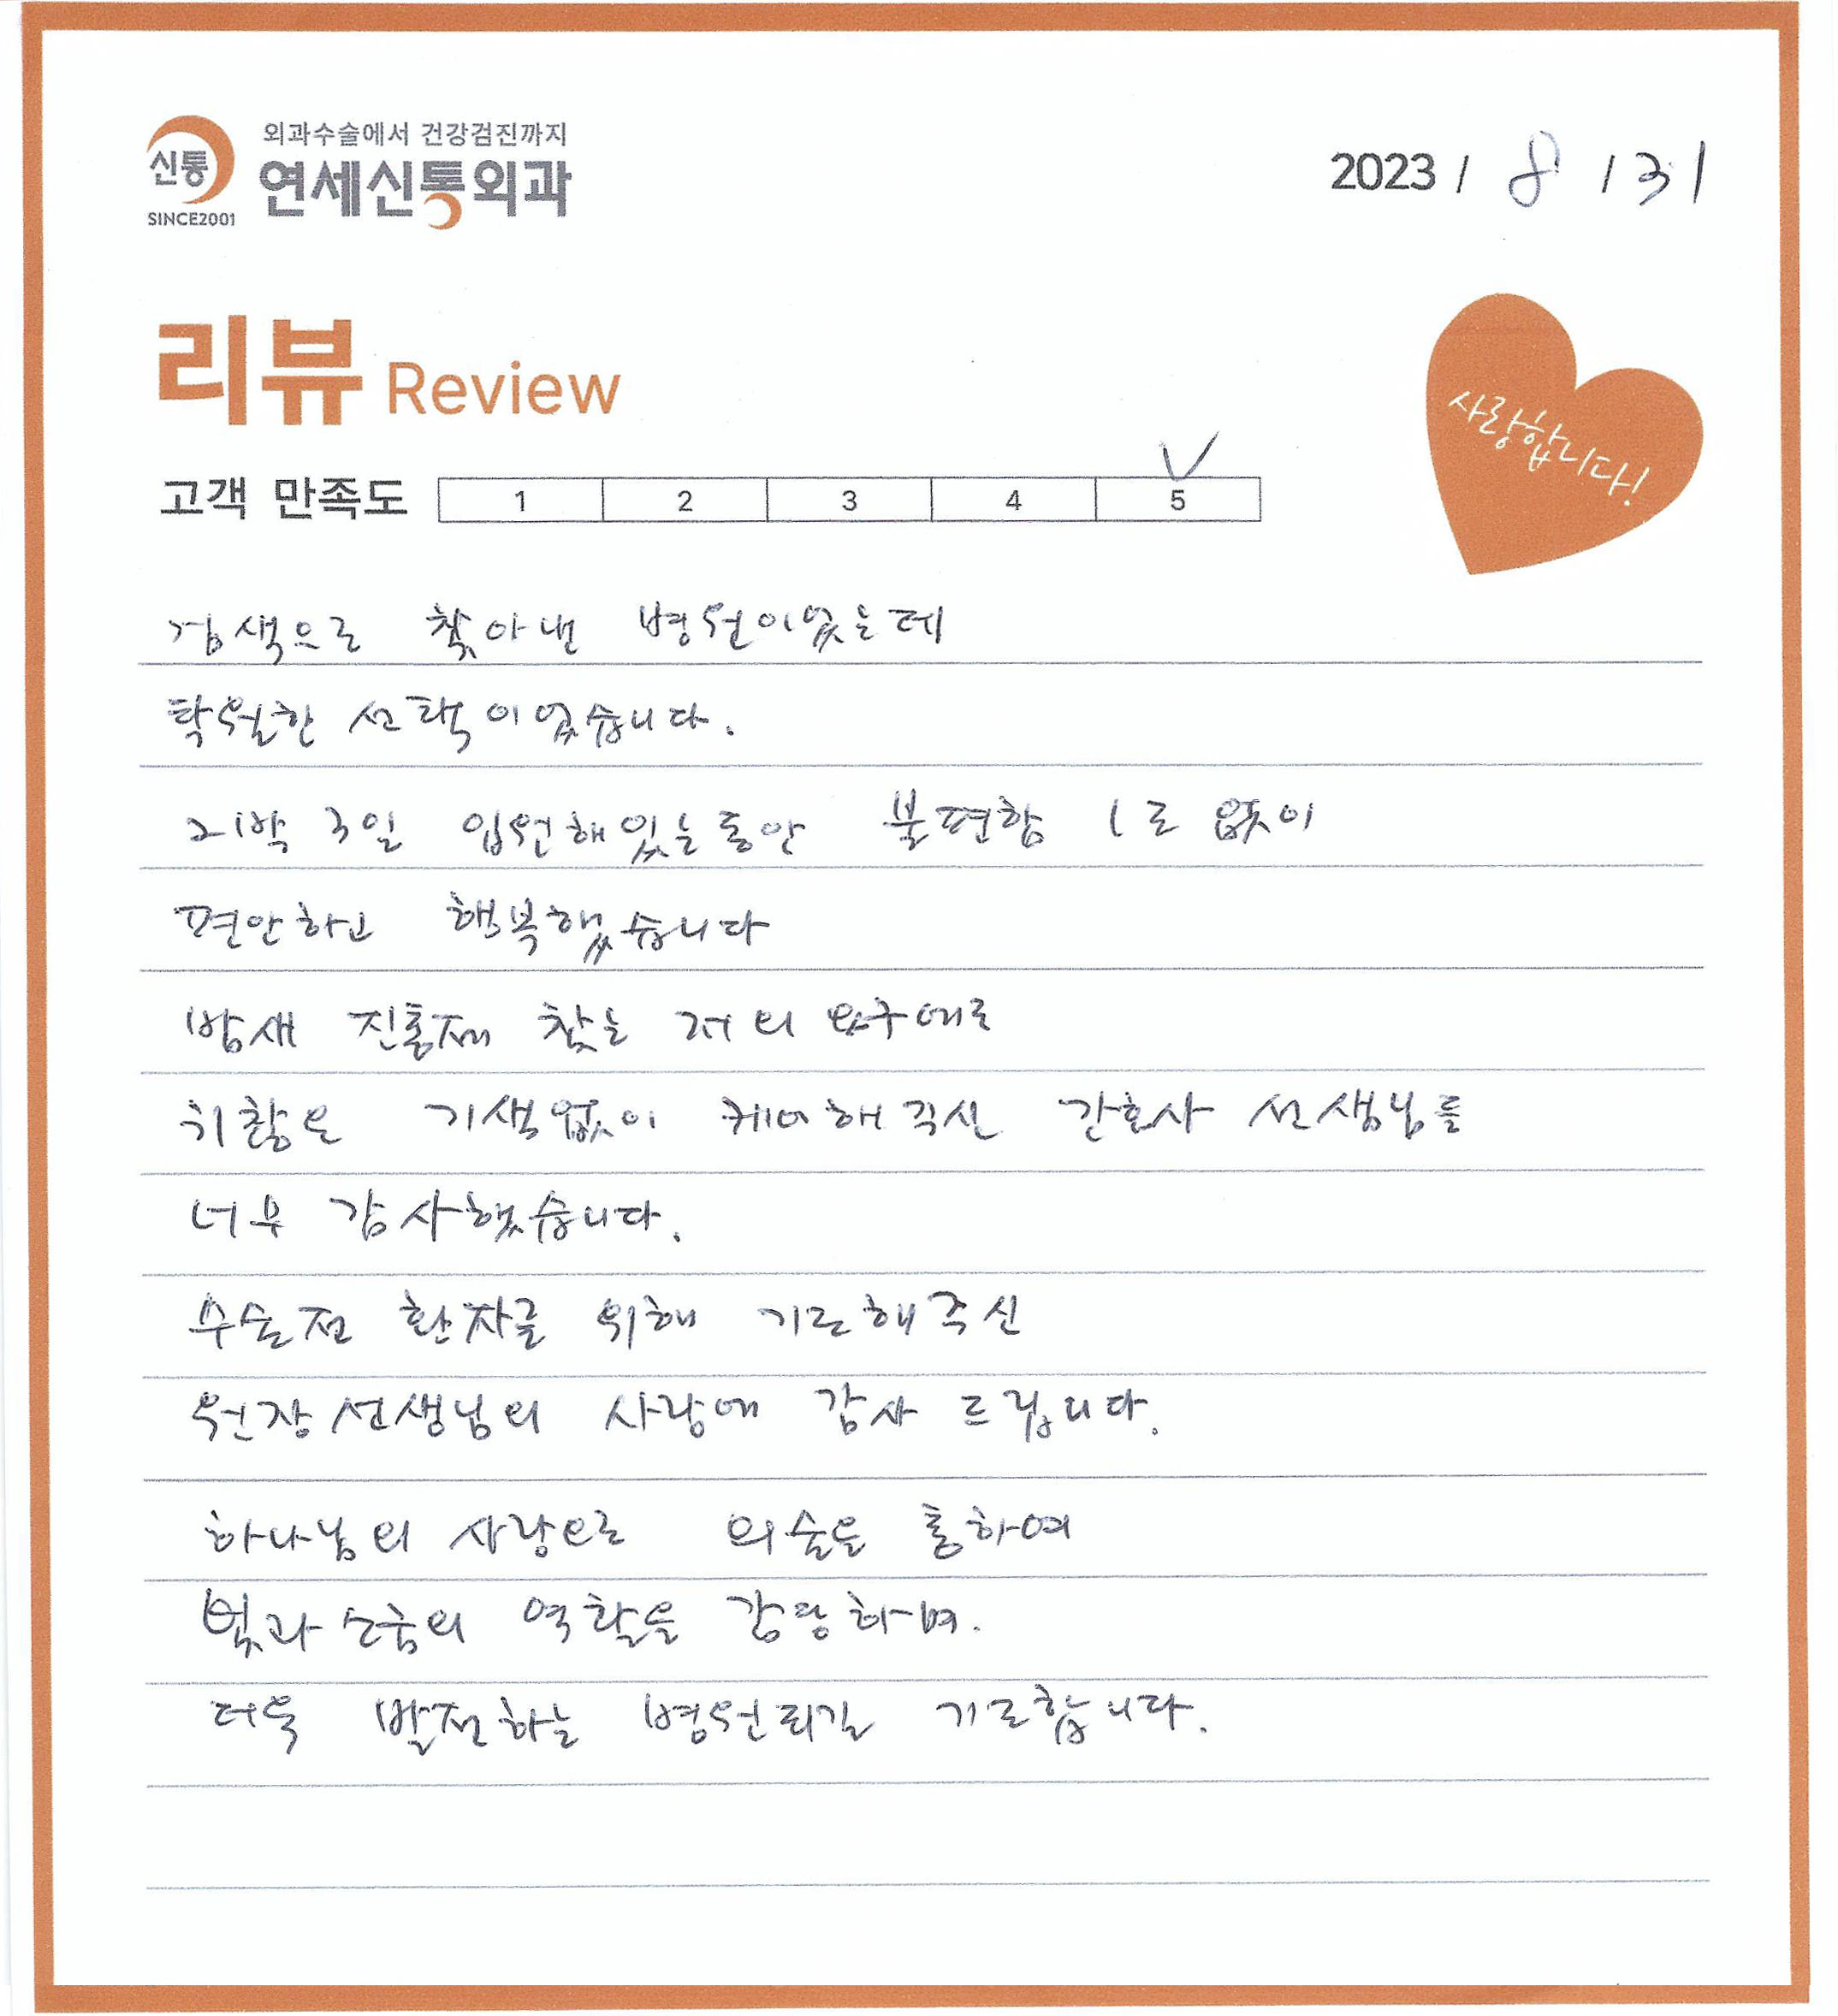 외과수술에서 건강검진까지
신통
연세신통외과
SINCE2001
2023 / 8 / 31
리뷰 Review
사랑합니다!
고객 만족도 1 2 3 4 5
검색으로 찾아낸 병원이었는데
탁월한 선택이었습니다.
2박 3일 입원해있는동안 불편함 1도 없이
편안하고 행복했습니다
밤새 진통제 찾는 저의 요구에도
귀찮은 기색없이 케어해주신 간호사 선생님들
너무 감사했습니다.
수술전 환자를 위해 기도해주신
원장선생님의 사랑에 감사 드립니다.
하나님의 사랑으로 의술을 통하여
빛과 소금의 역할을 감당하며.
더욱 발전하는 병원되길 기도합니다.